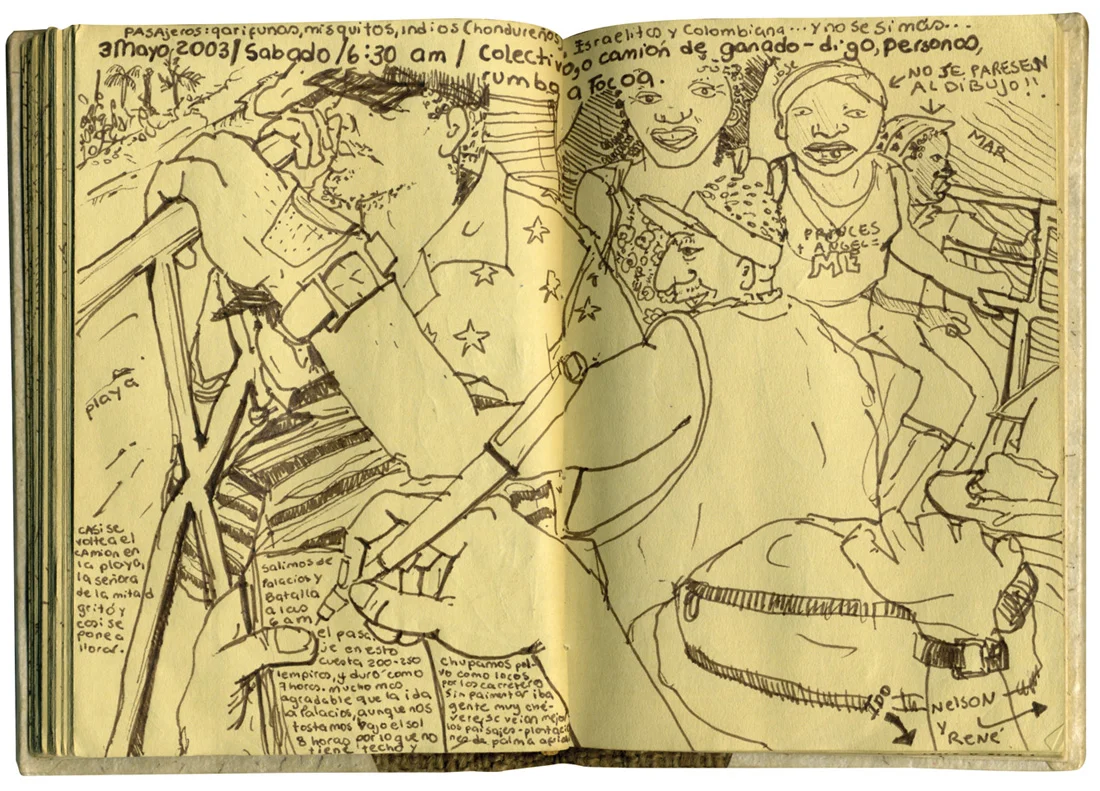 PASAjeros: garifunas, misquitos, indios (hondureños), Israelitas y Colombiana... y no se si más...
3 Mayo, 2003 / Sabado / 6:30 am / Colectivo, o camión de ganado - digo, personas,
rumbo a Tocoa.
NO SE PARESEN
AL DIBUJO!!
MAR
PRINCES
+ ANGEL =
ME
playa
CASi se
voltea el
cAmion en
la playa,
la señora
de la mitad
gritó y
casi se
pone a
llorar.
Salimos de
Palacios y
Batalla
a las
6 am
el pasa
je en esto
cuesta 200-250
lempiras, y duró como
7 horas. mucho mas
agradable que la ida
a Palacios, aunque nos
tostamos bajo el sol
8 horas por lo que no
tiene techo y
chupamos pol-
vo como locos
por las carretera
sin paimentar iba
gente muy ché-
vere, se veian mejor
los paisajes - plantacio
nes de palma
IDO
NELSON
y
RENÉ